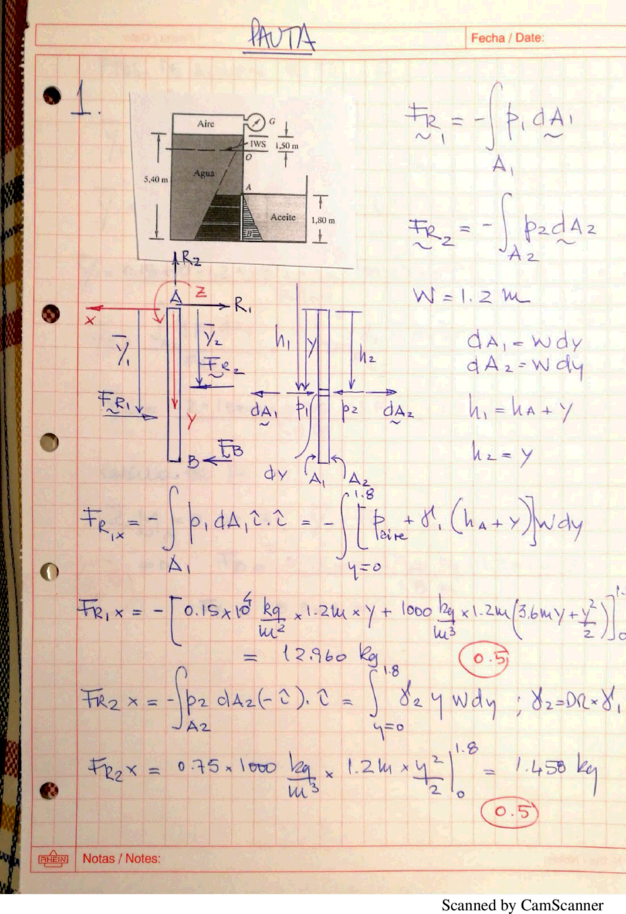 PAUTA
Fecha / Date:
1.
Aire
G
IWS
1,50 m
O
Agua
5,40 m
A
Aceite
1,80 m
B
F_R1 = -∫_A1 p1 dA1
F_R2 = -∫_A2 p2 dA2
W = 1.2 m
dA1 = w dy
dA2 = w dy
h1 = hA + y
h2 = y
R2
A
Z
R1
X
ȳ1
ȳ2
F_R2
F_R1
Y
B
F_B
h1
y
h2
dA1
p1
p2
dA2
dy
A1
A2
F_R1x = -∫_A1 p1 dA1 î.î = -∫_{y=0}^{1.8} [p_aire + γ1 (hA + y)] w dy
F_R1x = -[0.15x10^4 kg/m² x 1.2m x y + 1000 kg/m³ x 1.2m (3.6m y + y²/2)]_0^1.
= 12.960 kg
0.5
F_R2x = -∫_A2 p2 dA2 (-î).î = ∫_{y=0}^{1.8} γ2 y w dy ; γ2 = DR x γ1
F_R2x = 0.75 x 1000 kg/m³ x 1.2m x y²/2 |_0^1.8 = 1.458 kg
0.5
RHEIN
Notas / Notes:
Scanned by CamScanner